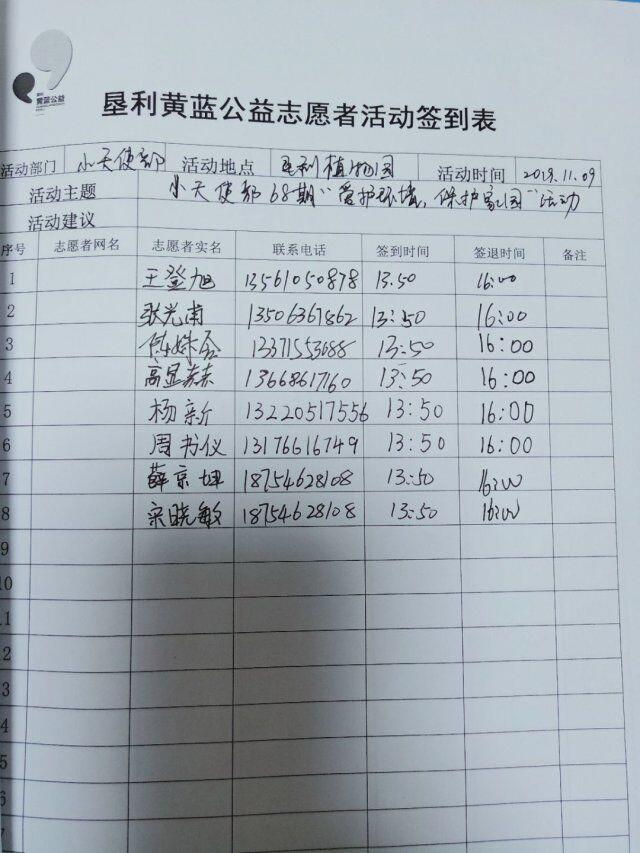 黄蓝公益
垦利黄蓝公益志愿者活动签到表
活动部门 小天使部 活动地点 垦利植物园 活动时间 2019.11.09
活动主题 小天使部68期“爱护环境,保护家园”活动
活动建议
序号 志愿者网名 志愿者实名 联系电话 签到时间 签退时间 备注
1 王登旭 13561050878 13.50 16:00
2 张光南 13506367862 13:50 16:00
3 13371553688 13:50 16:00
4 高显森 13668617160 13:50 16:00
5 杨新 13220517556 13:50 16:00
6 周书仪 13176616749 13:50 16:00
7 薛京坤 18754628108 13:50 16:00
8 宋晓敏 18754628108 13:50 16:00
9
10
1
2
3
4
5
6
7